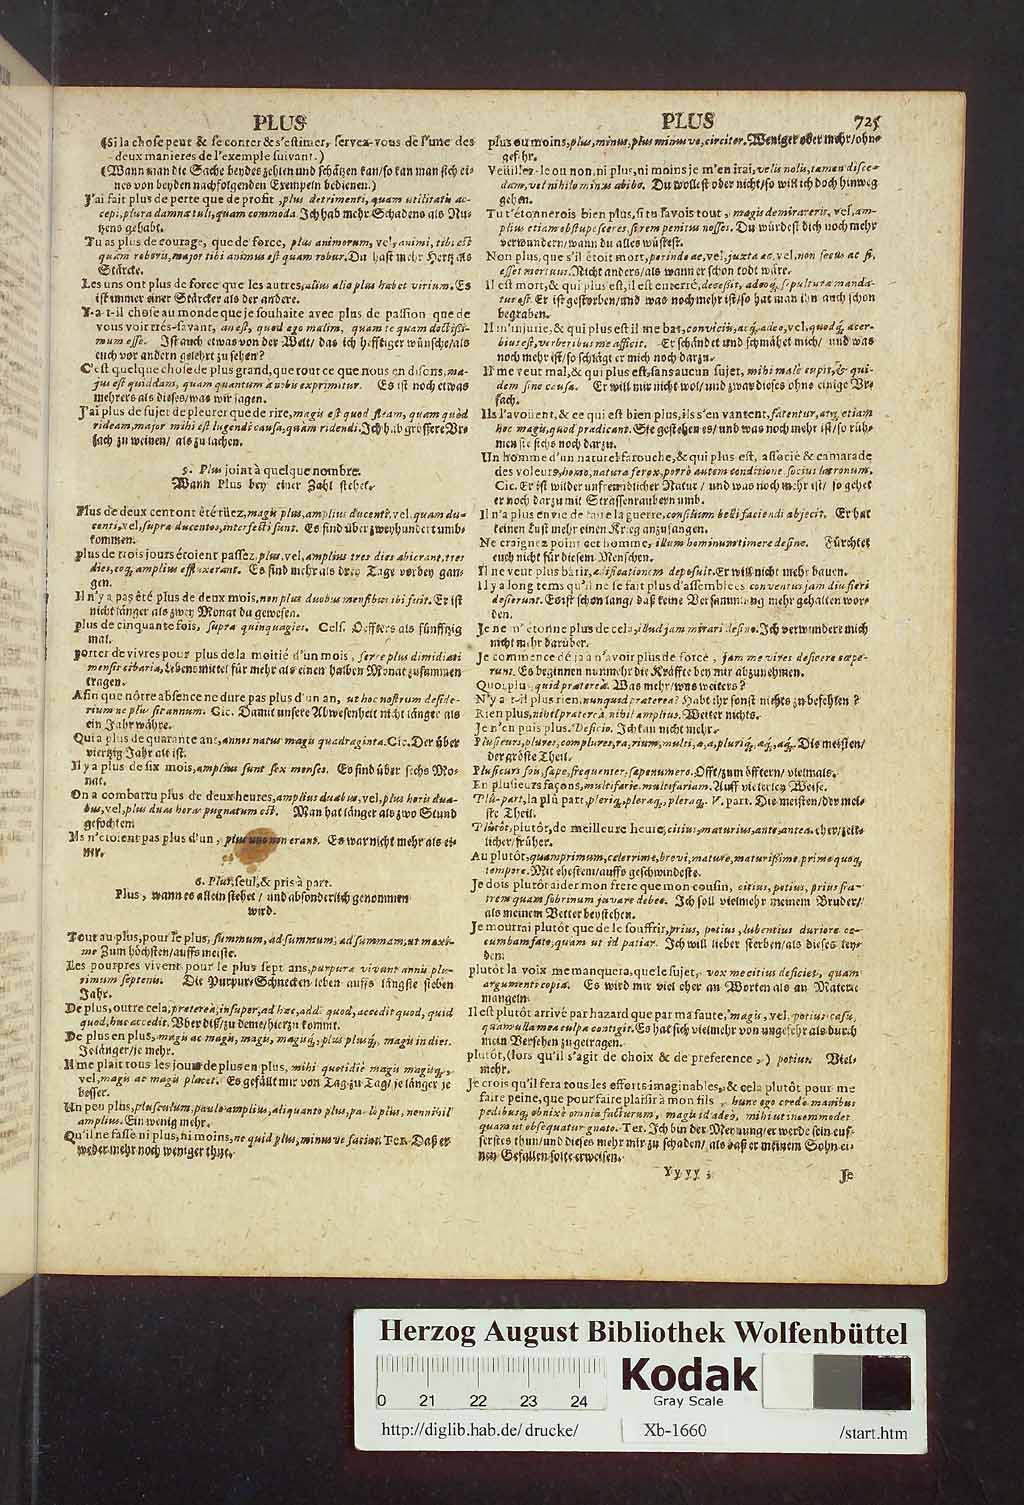 PLUS
(Si la chose peut & se conter & s'estimer, servez-vous de l'une des
deux manieres de l'exemple suivant.)
(Wann man die Sache beydes zehlen und schätzen kan/ so kan man sich ei-
nes von beyden nachfolgenden Exempeln bedienen.)
J'ai fait plus de perte que de profit, plus detrimenti, quam utilitatis ac-
cepi, plura damna tuli, quam commoda. Ich hab mehr Schadens als Nu-
tzens gehabt.
Tu as plus de courage, que de force, plus animorum, vel, animi, tibi est
quam roboris, major tibi animus est quam robur. Du hast mehr Hertz als
Stärcke.
Les uns ont plus de force que les autres, alius alio plus habet virium. Es
ist immer einer Stärcker als der andere.
Y-a-t-il chose au monde que je souhaite avec plus de passion que de
vous voir trés-savant, an est, quod ego malim, quam te quam doctissi-
mum esse. Ist auch etwas von der Welt/ das ich hefftiger wünsche/ als
euch vor andern gelehrt zu sehen?
C'est quelque chose de plus grand, que tout ce que nous en disons, ma-
jus est quiddam, quam quantum à nobis exprimitur. Es ist noch etwas
mehrers als dieses/ was wir sagen.
J'ai plus de sujet de pleurer que de rire, magis est quod fleam, quam quod
rideam, major mihi est lugendi causa, quàm ridendi. Ich hab grössere Ur-
sach zu weinen/ als zu lachen.
5. Plus joint à quelque nombre.
Wann Plus bey einer Zahl stehet.
Plus de deux cent ont été tüez, magis plus, amplius ducenti, vel, quam du-
centi, vel, supra ducentos, interfecti sunt. Es sind über zweyhundert umb-
kommen.
plus de trois jours étoient passez, plus, vel, amplius tres dies abierant, tres
dies, eoq; amplius effluxerant. Es sind mehr als drey Tage vorbey gan-
gen.
Il n'y a pas été plus de deux mois, non plus duobus mensibus ibi fuit. Er ist
nicht länger als zwey Monat da gewesen.
plus de cinquante fois, supra quinquagies. Cels. Oeffters als fünfftzig
mal.
porter de vivres pour plus de la moitié d'un mois, ferre plus dimidiati
mensis cibaria, Lebensmittel für mehr als einen halben Monat zusammen
tragen.
Afin que nôtre absence ne dure pas plus d'un an, ut hoc nostrum deside-
rium ne plus sit annum. Cic. Damit unsere Abwesenheit nicht länger als
ein Jahr währe.
Qui a plus de quarante ans, annos natus magis quadraginta. Cic. Der über
viertzig Jahr alt ist.
Il y a plus de six mois, amplius sunt sex menses. Es sind über sechs Mo-
nat.
On a combattu plus de deux-heures, amplius duabus, vel, plus horis dua-
bus, vel, plus duas horas pugnatum est. Man hat länger als zwo Stund
gefochten.
Ils n'étoient pas plus d'un, plus uno non erant. Es war nicht mehr als ei-
ner.
6. Plus, seul, & pris à part.
Plus, wann es allein stehet/ und absonderlich genommen
wird.
Tout au plus, pour le plus, summum, ad summum, ad summam, ut maxi-
me Zum höchsten/ auffs meiste.
Les pourpres vivent pour le plus sept ans, purpuræ vivunt annis plu-
rimum septenis. Die Purpur-Schnecken leben auffs längste sieben
Jahr.
De plus, outre cela, prætereà, insuper, ad hæc, add: quod, accedit quod, quid
quod, huc accedit. Uber diß/ zu deme/ hierzu kommt.
De plus en plus, magis ac magis, magis, magisq;, plus plusq;, magis in dies.
Je länger/ je mehr.
Il me plait tous les jours de plus en plus, mihi quotidiè magis magisq;,
vel, magis ac magis placet. Es gefällt mir von Tag zu Tag/ je länger je
besser.
Un peu plus, plusculum, paulo amplius, aliquanto plus, paulò plus, nonnihil
amplius. Ein wenig mehr.
Qu'il ne fasse ni plus, ni moins, ne quid plus, minusve faciat. Ter. Daß er
weder mehr noch weniger thue.
PLUS 725
plus ou moins, plus, minus, plus minusve, circiter. Weniger oder mehr/ ohn-
gefehr.
Veüillez-le ou non, ni plus, ni moins je m'en irai, velis nolis, tamen disce-
dam, vel nihilo minus abibo. Du wollest oder nicht/ so will ich doch hinweg
gehen.
Tu t'étonnerois bien plus, si tu savois tout, magis demirareris, vel, am-
plius etiam obstupesceres, si rem penitus nosses. Du würdest dich noch mehr
verwundern/ wann du alles wüstest.
Non plus, que s'il étoit mort, perinde ac, vel, juxta ac, vel, non secus ac si,
esset mortuus. Nicht anders/ als wann er schon todt wäre.
il est mort, & qui plus est, il est enterré, decessit, adeoq; sepulturæ manda-
tus est. Er ist gestorben/ und was noch mehr ist/ so hat man ihn auch schon
begraben.
Il m'injurie, & qui plus est il me bat, conviciis, atq; adeo, vel, quodq; acer-
bius est, verberibus me afficit. Er schändet und schmähet mich/ und was
noch mehr ist/ so schlägt er mich noch darzu.
Il me veut mal, & qui plus est, sans aucun sujet, mihi malè cupit, & qui-
dem sine causa. Er will mir nicht wol/ und zwar dieses ohne einige Ur-
sach.
Ils l'avoüent, & ce qui est bien plus, ils s'en vantent, fatentur, atq; etiam
hoc magis, quod prædicant. Sie gestehen es/ und was noch mehr ist/ so rüh-
men sie sichs noch darzu.
Un homme d'un naturel farouche, & qui plus est, associé & camarade
des voleurs, homo, naturâ ferox, porrò autem conditione socius latronum.
Cic. Er ist wilder unfreundlicher Natur/ und was noch mehr ist/ so gehet
er noch darzu mit Strassenraubern umb.
Il n'a plus envie de faire la guerre, consilium belli faciendi abjecit. Er hat
keinen Lust mehr einen Krieg anzufangen.
Ne craignez point cet homme, illum hominum timere desine. Fürchtet
euch nicht für diesem Menschen.
Il ne veut plus bâtir, ædificationem deposuit. Er will nicht mehr bauen.
Il y a long tems qu'il ne se fait plus d'assemblées, conventus jam diu fieri
desierunt. Es ist schon lang/ daß keine Versammlung mehr gehalten wor-
den.
Je ne m'étonne plus de cela, illud jam mirari desino. Ich verwundere mich
nicht mehr darüber.
Je commence déja à n'avoir plus de force, jam me vires deficere cœpe-
runt. Es beginnen nunmehr die Kräffte bey mir abzunehmen.
Quoi plus, quid præterea. Was mehr/ was weiters?
N'y a-t-il plus rien, nunquid præterea? Habt ihr sonst nichts zu befehlen?
Rien plus, nihil prætereà, nihil amplius. Weiter nichts.
Je n'en puis plus. Deficio. Ich kan nicht mehr.
Plusieurs, plures, complures, ra, rium, multi, æ, a, pluriq;, æq;, aq;. Die meisten/
der gröste Theil.
Plusieurs fou, sæpe, frequenter, sæpenumerò. Offt/ zum öfftern/ vielmals.
En plusieurs façons, multifarie. multifariam. Auff vielerley Weise.
Plû-part, la plû part, pleriq; pleræq; pleraq;. V. part. Die meisten/ der mei-
ste Theil.
Plutôt, plutôt, de meilleure heure, citius, maturius, ante, antea. eher/ zeit-
licher/ früher.
Au plutôt, quamprimum, celerrimè, brevi, maturè, maturissimè, primo quoq;
tempore. Mit ehesten/ auffs geschwindeste.
Je dois plutôt aider mon frere que mon cousin, citius, potius, prius fra-
trem quam sobrinum juvare debeo. Ich soll vielmehr meinem Bruder/
als meinem Vetter beystehen.
Je mourrai plutôt que de le souffrir, prius, potius, lubentius duriore oc-
cumbam fato, quam ut id patiar. Ich will lieber sterben/ als dieses ley-
den.
plutôt la voix me manquera, que le sujet, vox me citius deficiet, quam
argumenti copia. Es wird mir viel eher an Worten als an Materie
mangeln.
Il est plutôt arrivé par hazard que par ma faute, magis, vel, potius casu,
quàm ullâ meâ culpâ contigit. Es hat sich vielmehr von ungefehr als durch
mein Versehen zugetragen.
plutôt, (lors qu'il s'agit de choix & de preference,) potius. Viel-
mehr.
Je crois qu'il fera tous les efforts imaginables, & cela plutôt pour me
faire peine, que pour faire plaisir à mon fils, hunc ego credo manibus
pedibusq; obnixè omnia facturum, magis id adeò, mihi ut incommodet
quam ut obsequatur gnato. Ter. Ich bin der Meynung/ er werde sein eus-
serstes thun/ und dieses mehr mir zu schaden/ als daß er meinem Sohn ei-
nen Gefallen solte erweisen.
Yy yy 3 Je
Herzog August Bibliothek Wolfenbüttel
0 21 22 23 24
Kodak
Gray Scale
http://diglib.hab.de/drucke/ Xb-1660 /start.htm